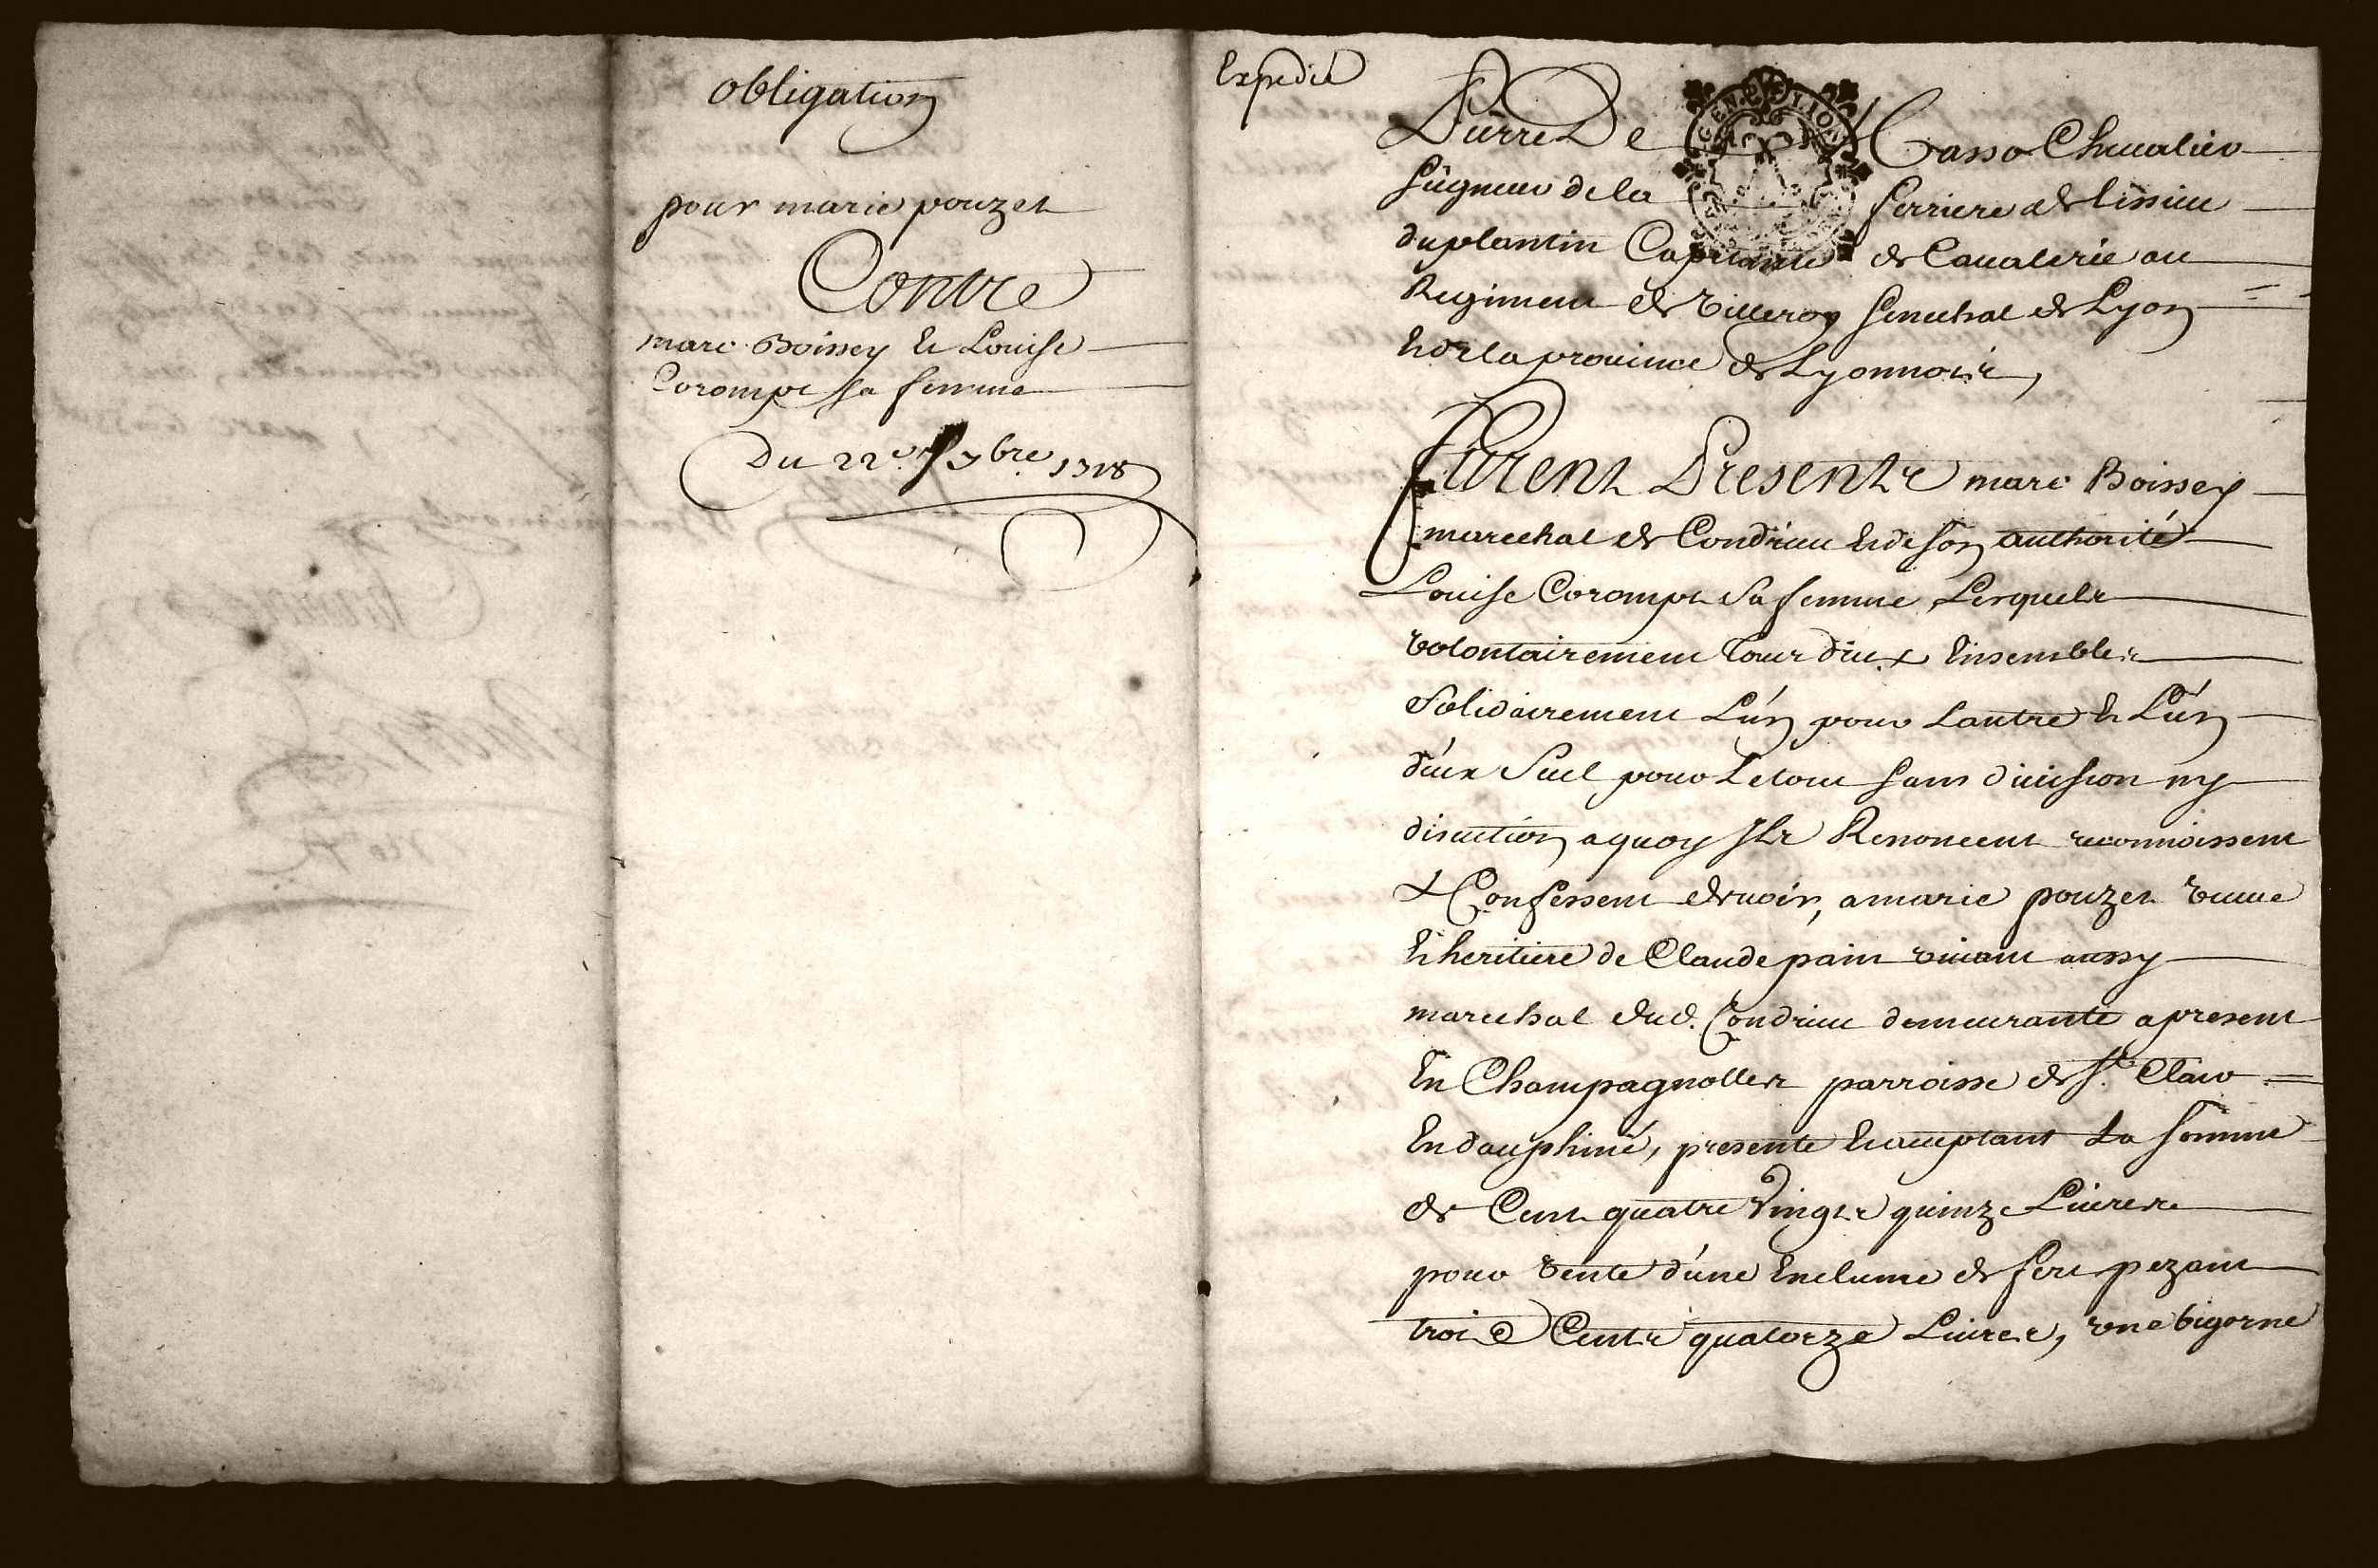 obligation
pour marie pouzet
Contre
marc Boissey et Louise
Corompt sa femme
Du 22e 7bre 1718
Expedié
Pierre De Masso Chevalier
seigneur de la ferriere de lissieu
du plantin Capitaine de Cavalerie au
Regiment de villeroy senechal de Lyon
et de la province de Lyonnois,
Furent Presents marc Boissey
marechal de Condrieu et de son authorité
Louise Corompt sa femme, Lesquels
volontairement tous deux Ensembles
solidairement L'un pour L'autre et L'un
d'eux seul pour Le tout sans division ny
discution a quoy Ils Renoncent reconnoissent
& Confessent devoir, a marie pouzet veuve
et heritiere de Claude pain vivant aussy
marechal dud. Condrieu demeurante a present
En Champagnolles parroisse de St. Clair
En dauphiné, presente et acceptant La somme
de Cent quatre vingts quinze Livres
pour vente d'une Enclume de fert pezant
trois Cents quatorze Livres, une bigorne